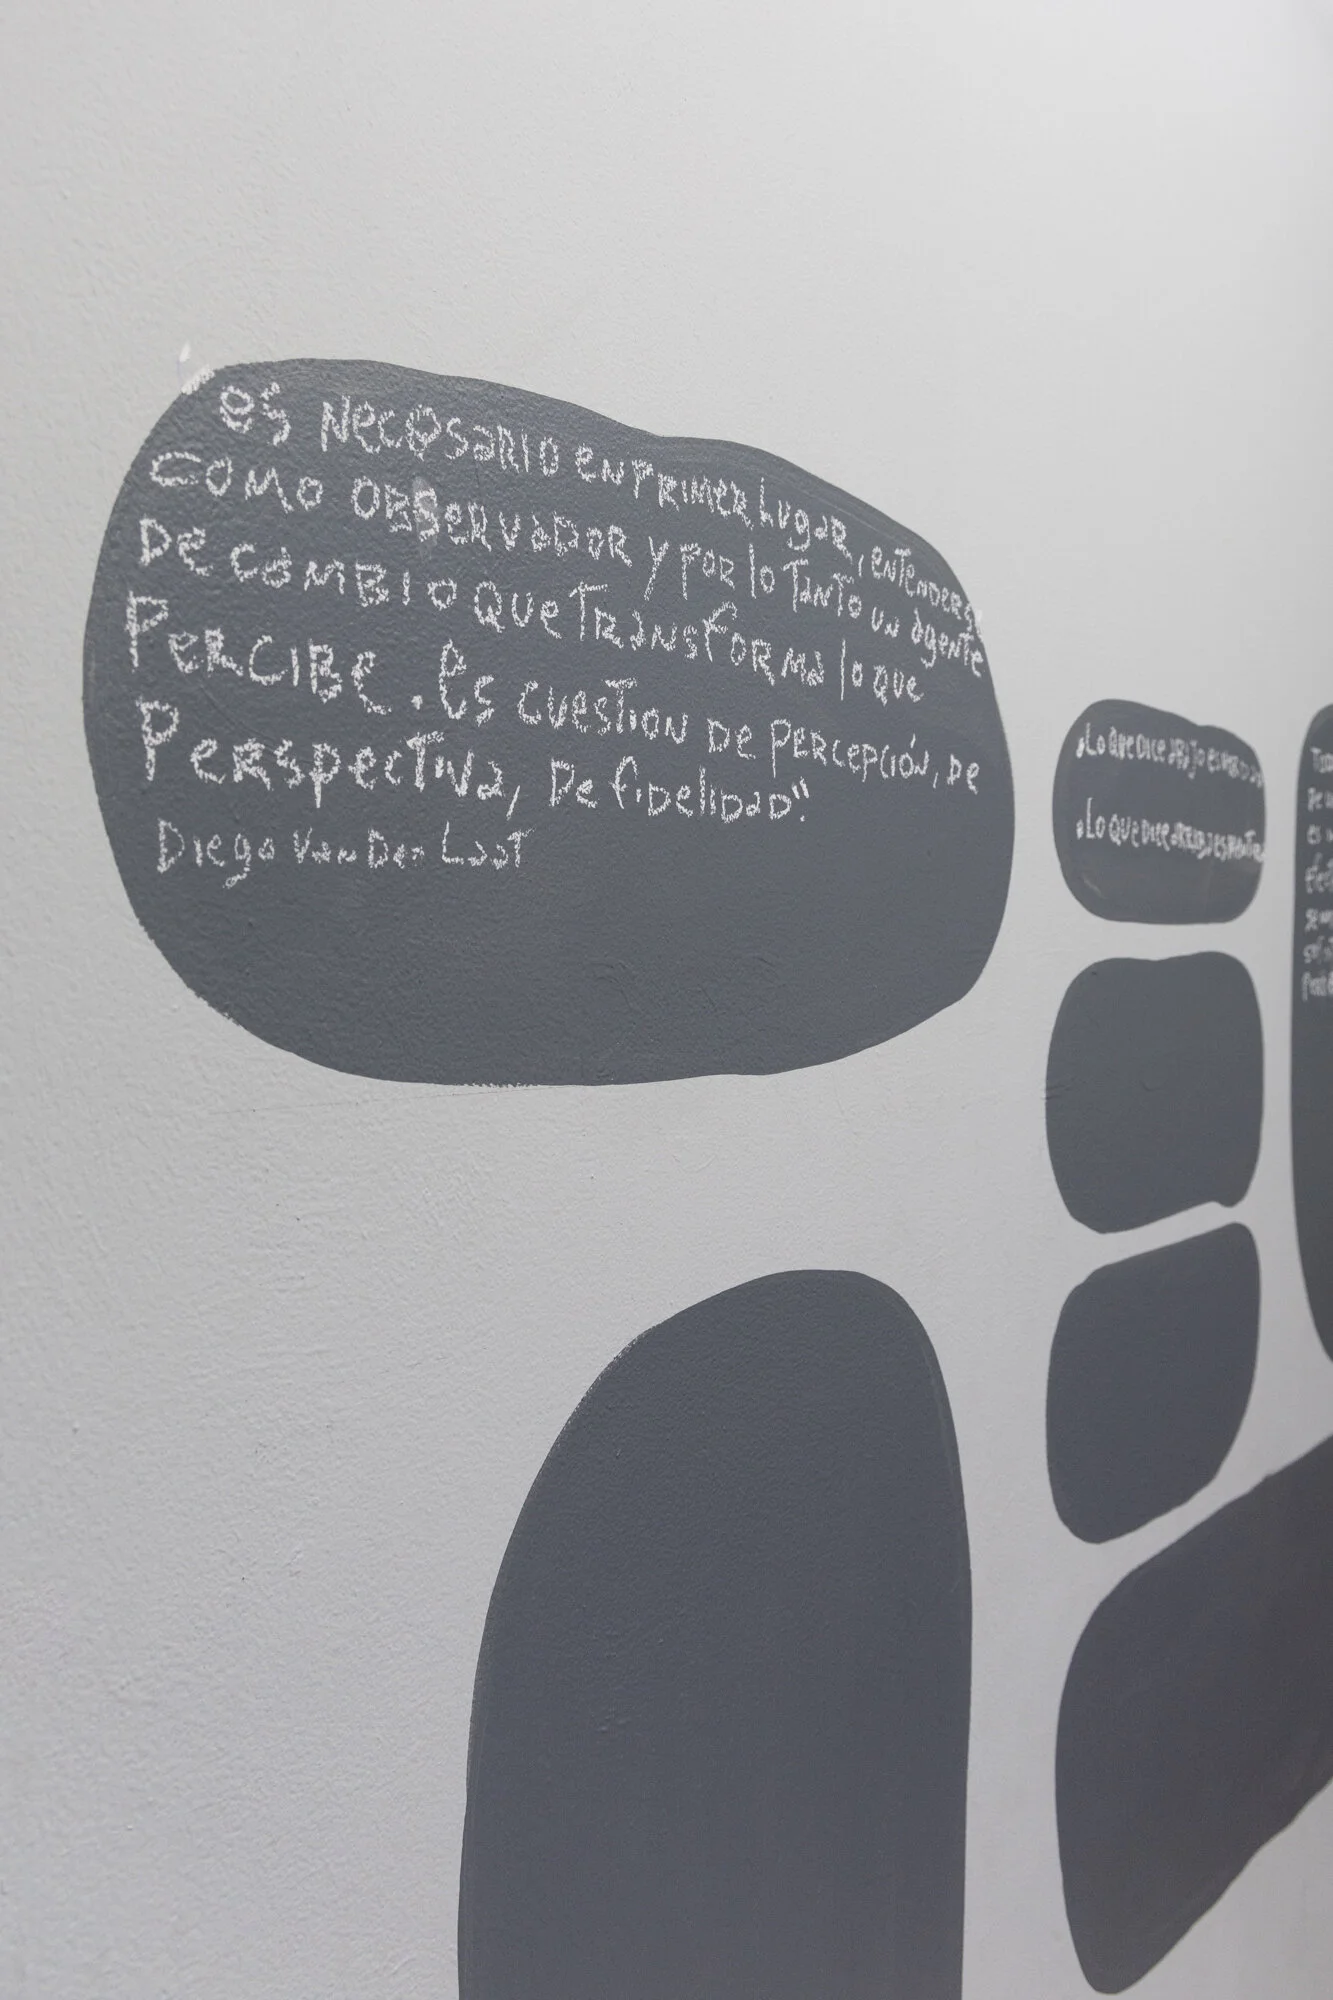 es NecesaRIO en PRIMER LugaR, eNTeNDeRse
COMO OBSeRVaDOR y POR lo TaNTO uN ageNTe
De CaMBIO QUe TRaNSfORMa lo que
PeRCIBe. es CuesTION De PeRCePCIóN, De
PeRspecTiVa, De fiDeliDaD".
Diego VaN DeR LaaT
•Lo QUe DICe aBaJo es
•Lo QUe DICe aRRIBa es
De
es